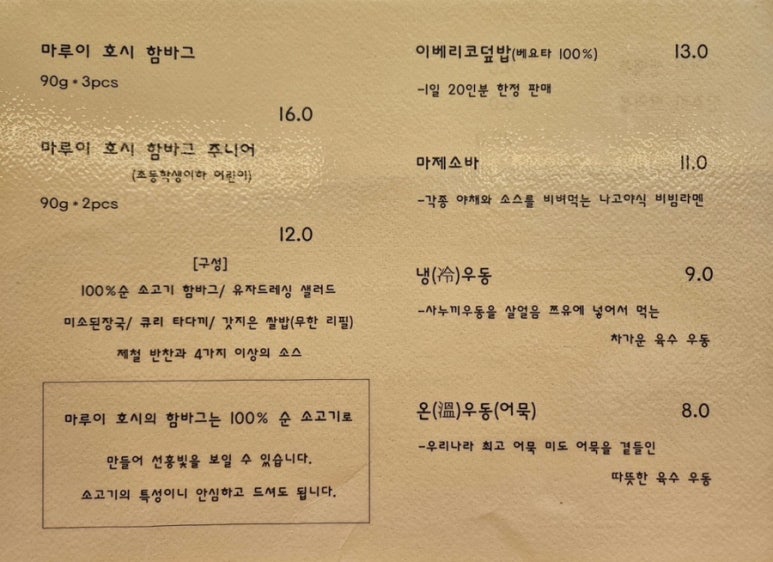 마루이 호시 함바그
90g * 3pcs
16.0
마루이 호시 함바그 주니어
(초등학생이하 어린이)
90g * 2pcs
12.0
[구성]
100%순 소고기 함바그/ 유자드레싱 샐러드
미소된장국/ 큐리 타다끼/ 갓지은 쌀밥(무한 리필)
제철 반찬과 4가지 이상의 소스
마루이 호시의 함바그는 100% 순 소고기로
만들어 선홍빛을 보일 수 있습니다.
소고기의 특성이니 안심하고 드셔도 됩니다.
이베리코덮밥(베요타 100%) 13.0
-1일 20인분 한정 판매
마제소바 11.0
-각종 야채와 소스를 비벼먹는 나고야식 비빔라멘
냉(冷)우동 9.0
-사누끼우동을 살얼음 쯔유에 넣어서 먹는
차가운 육수 우동
온(溫)우동(어묵) 8.0
-우리나라 최고 어묵 미도 어묵을 곁들인
따뜻한 육수 우동